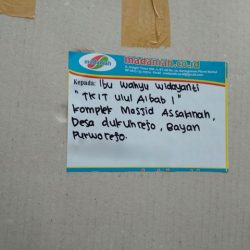 madaniah.co.id
Kepada: Ibu Wahyu Widayanti
"TKIT Ulul Albab 1"
Komplek Masjid Assakinah,
Desa dukuhrejo, Bayan
Purworejo.